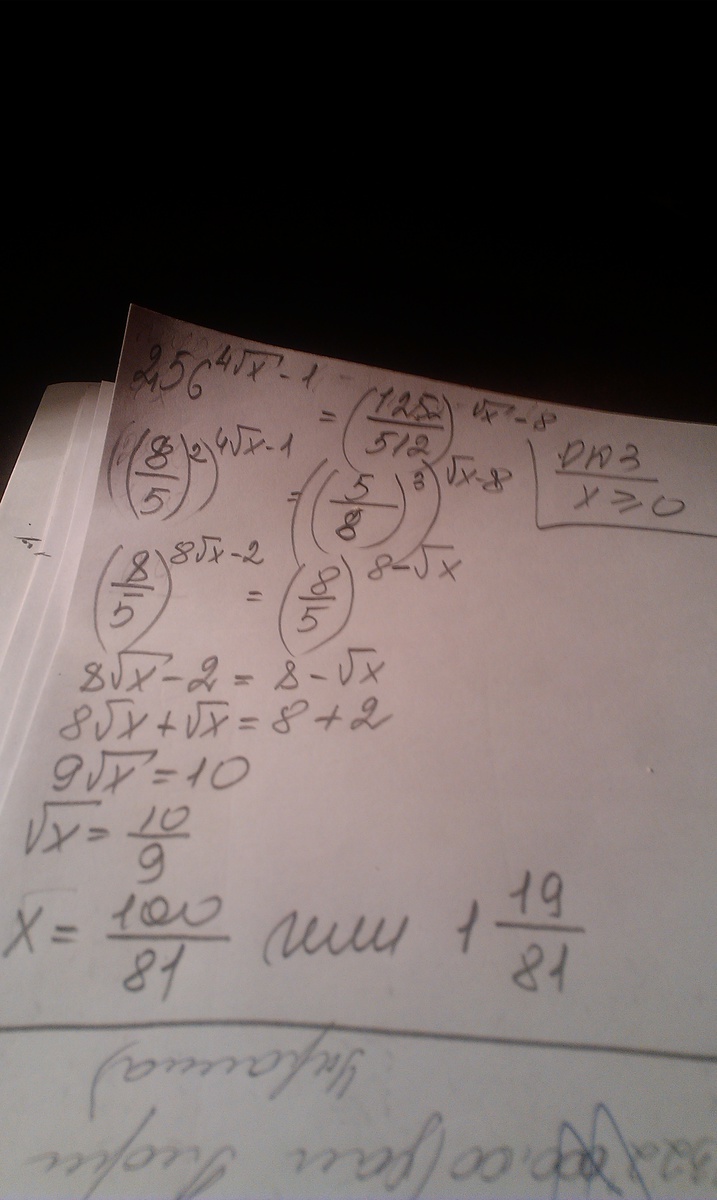 2,56^(4√x - 1) = (125/512)^(√x - 8)
((8/5)^2)^(4√x - 1) = ((5/8)^3)^(√x - 8)
ОДЗ
x ≥ 0
(8/5)^(8√x - 2) = (8/5)^(8 - √x)
8√x - 2 = 8 - √x
8√x + √x = 8 + 2
9√x = 10
√x = 10/9
x = 100/81 или 1 19/81